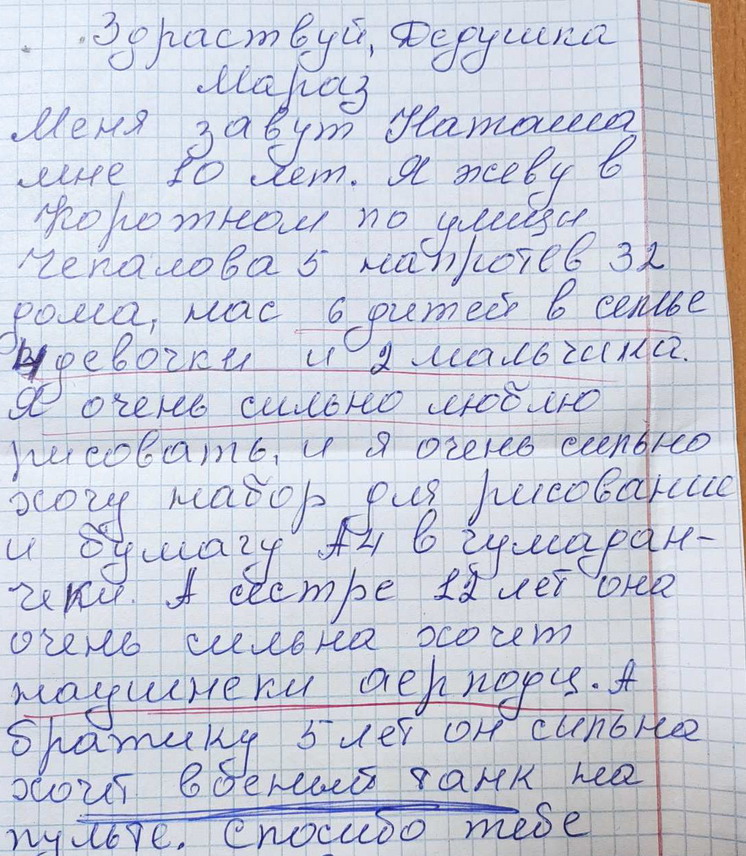 Здраствуй, Дедушка
Мараз
Меня завут Наташа
мне 10 лет. Я жеву в
Коротном по улици
Чепалова 5 напротев 32
дома, нас 6 дитей в семье
4 девочки и 2 мальчика.
Я очень сильно люблю
рисовать, и я очень сильно
хочу набор для рисование
и бумагу А4 в
А сестре 12 лет она
очень сильна хочет
наушнеки аерподц. А
братику 5 лет он сильна
хочит вбеный танк на
пульте. Спосибо тебе